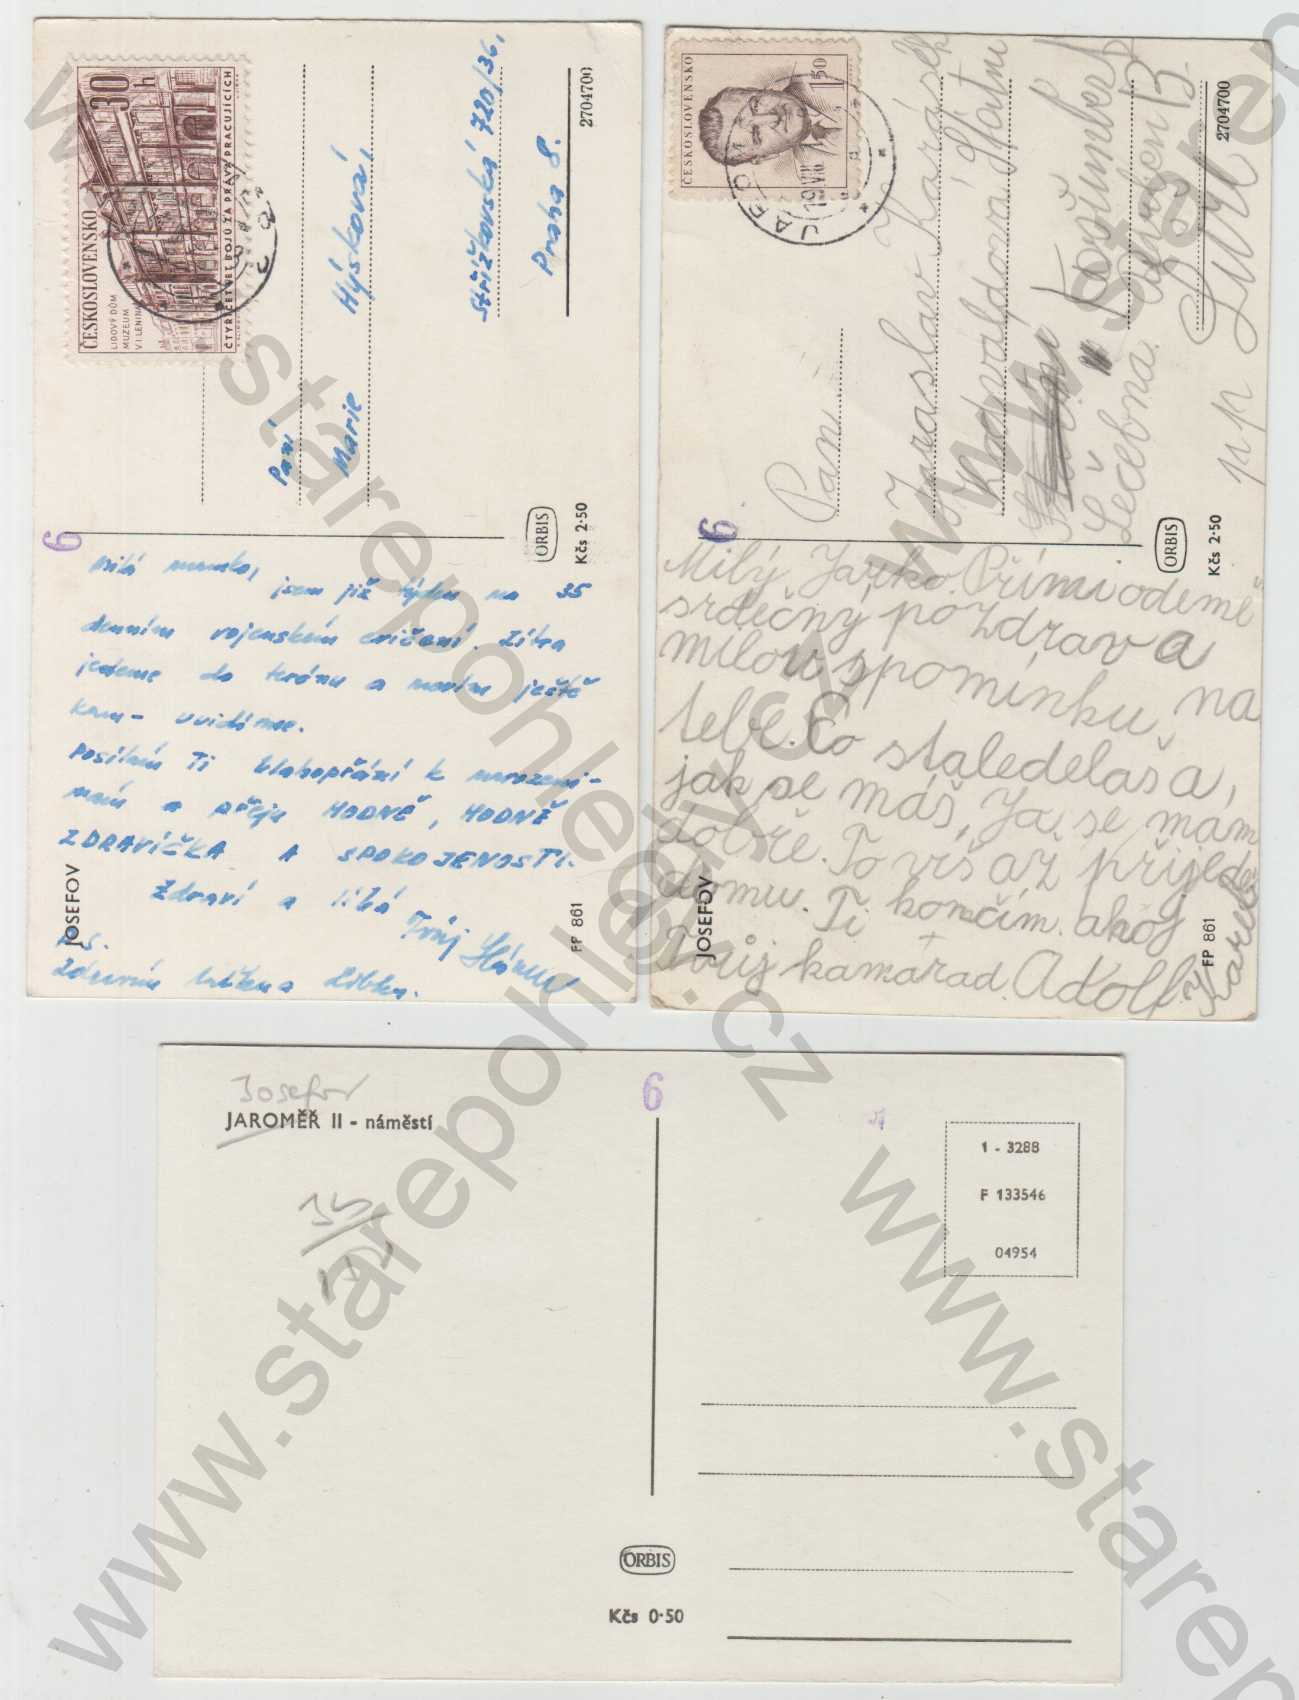 ČESKOSLOVENSKO
30 h
LIDOVÝ DŮM
MUZEUM
V.I.LENINA
ČTYŘICET LET BOJŮ ZA PRÁVA PRACUJÍCÍCH
Paní
Marie Hýsková,
Střížkovská 720/36,
Praha 8.
2704700
6
ORBIS
Kčs 2·50
Milá mamko,
jsem již týden na 35
denním vojenském cvičení. Zítra
jedeme do terénu a nevím ještě
kam - uvidíme.
Posílám Ti blahopřání k narozeni-
nám a přeju HODNĚ, HODNĚ
ZDRAVÍČKA A SPOKOJENOSTI.
Zdraví a líbá
Tvůj
P.S.
Zdravím Libku.
JOSEFOV
FP 861
ČESKOSLOVENSKO
1·50
JARO
19.VIII
Pan
Jaraslav Karásek
Radvaldova
Košumberk
Léčebna
Luže
p p
2704700
6
ORBIS
Kčs 2·50
Milý Jarko. Přími odemě
srdečný pozdrav a
milou spomínku na
tebe. Co staledelaš a,
jak se máš, Ja se mám
dobře. To víš až přijedu
domu. Ti končím ahoj
Tvůj kamarad. Adolf
Karel
JOSEFOV
FP 861
Josefov
JAROMĚŘ II - náměstí
6
1 - 3288
F 133546
04954
ORBIS
Kčs 0·50
www.starepohledy.cz
www.starepohledy.cz